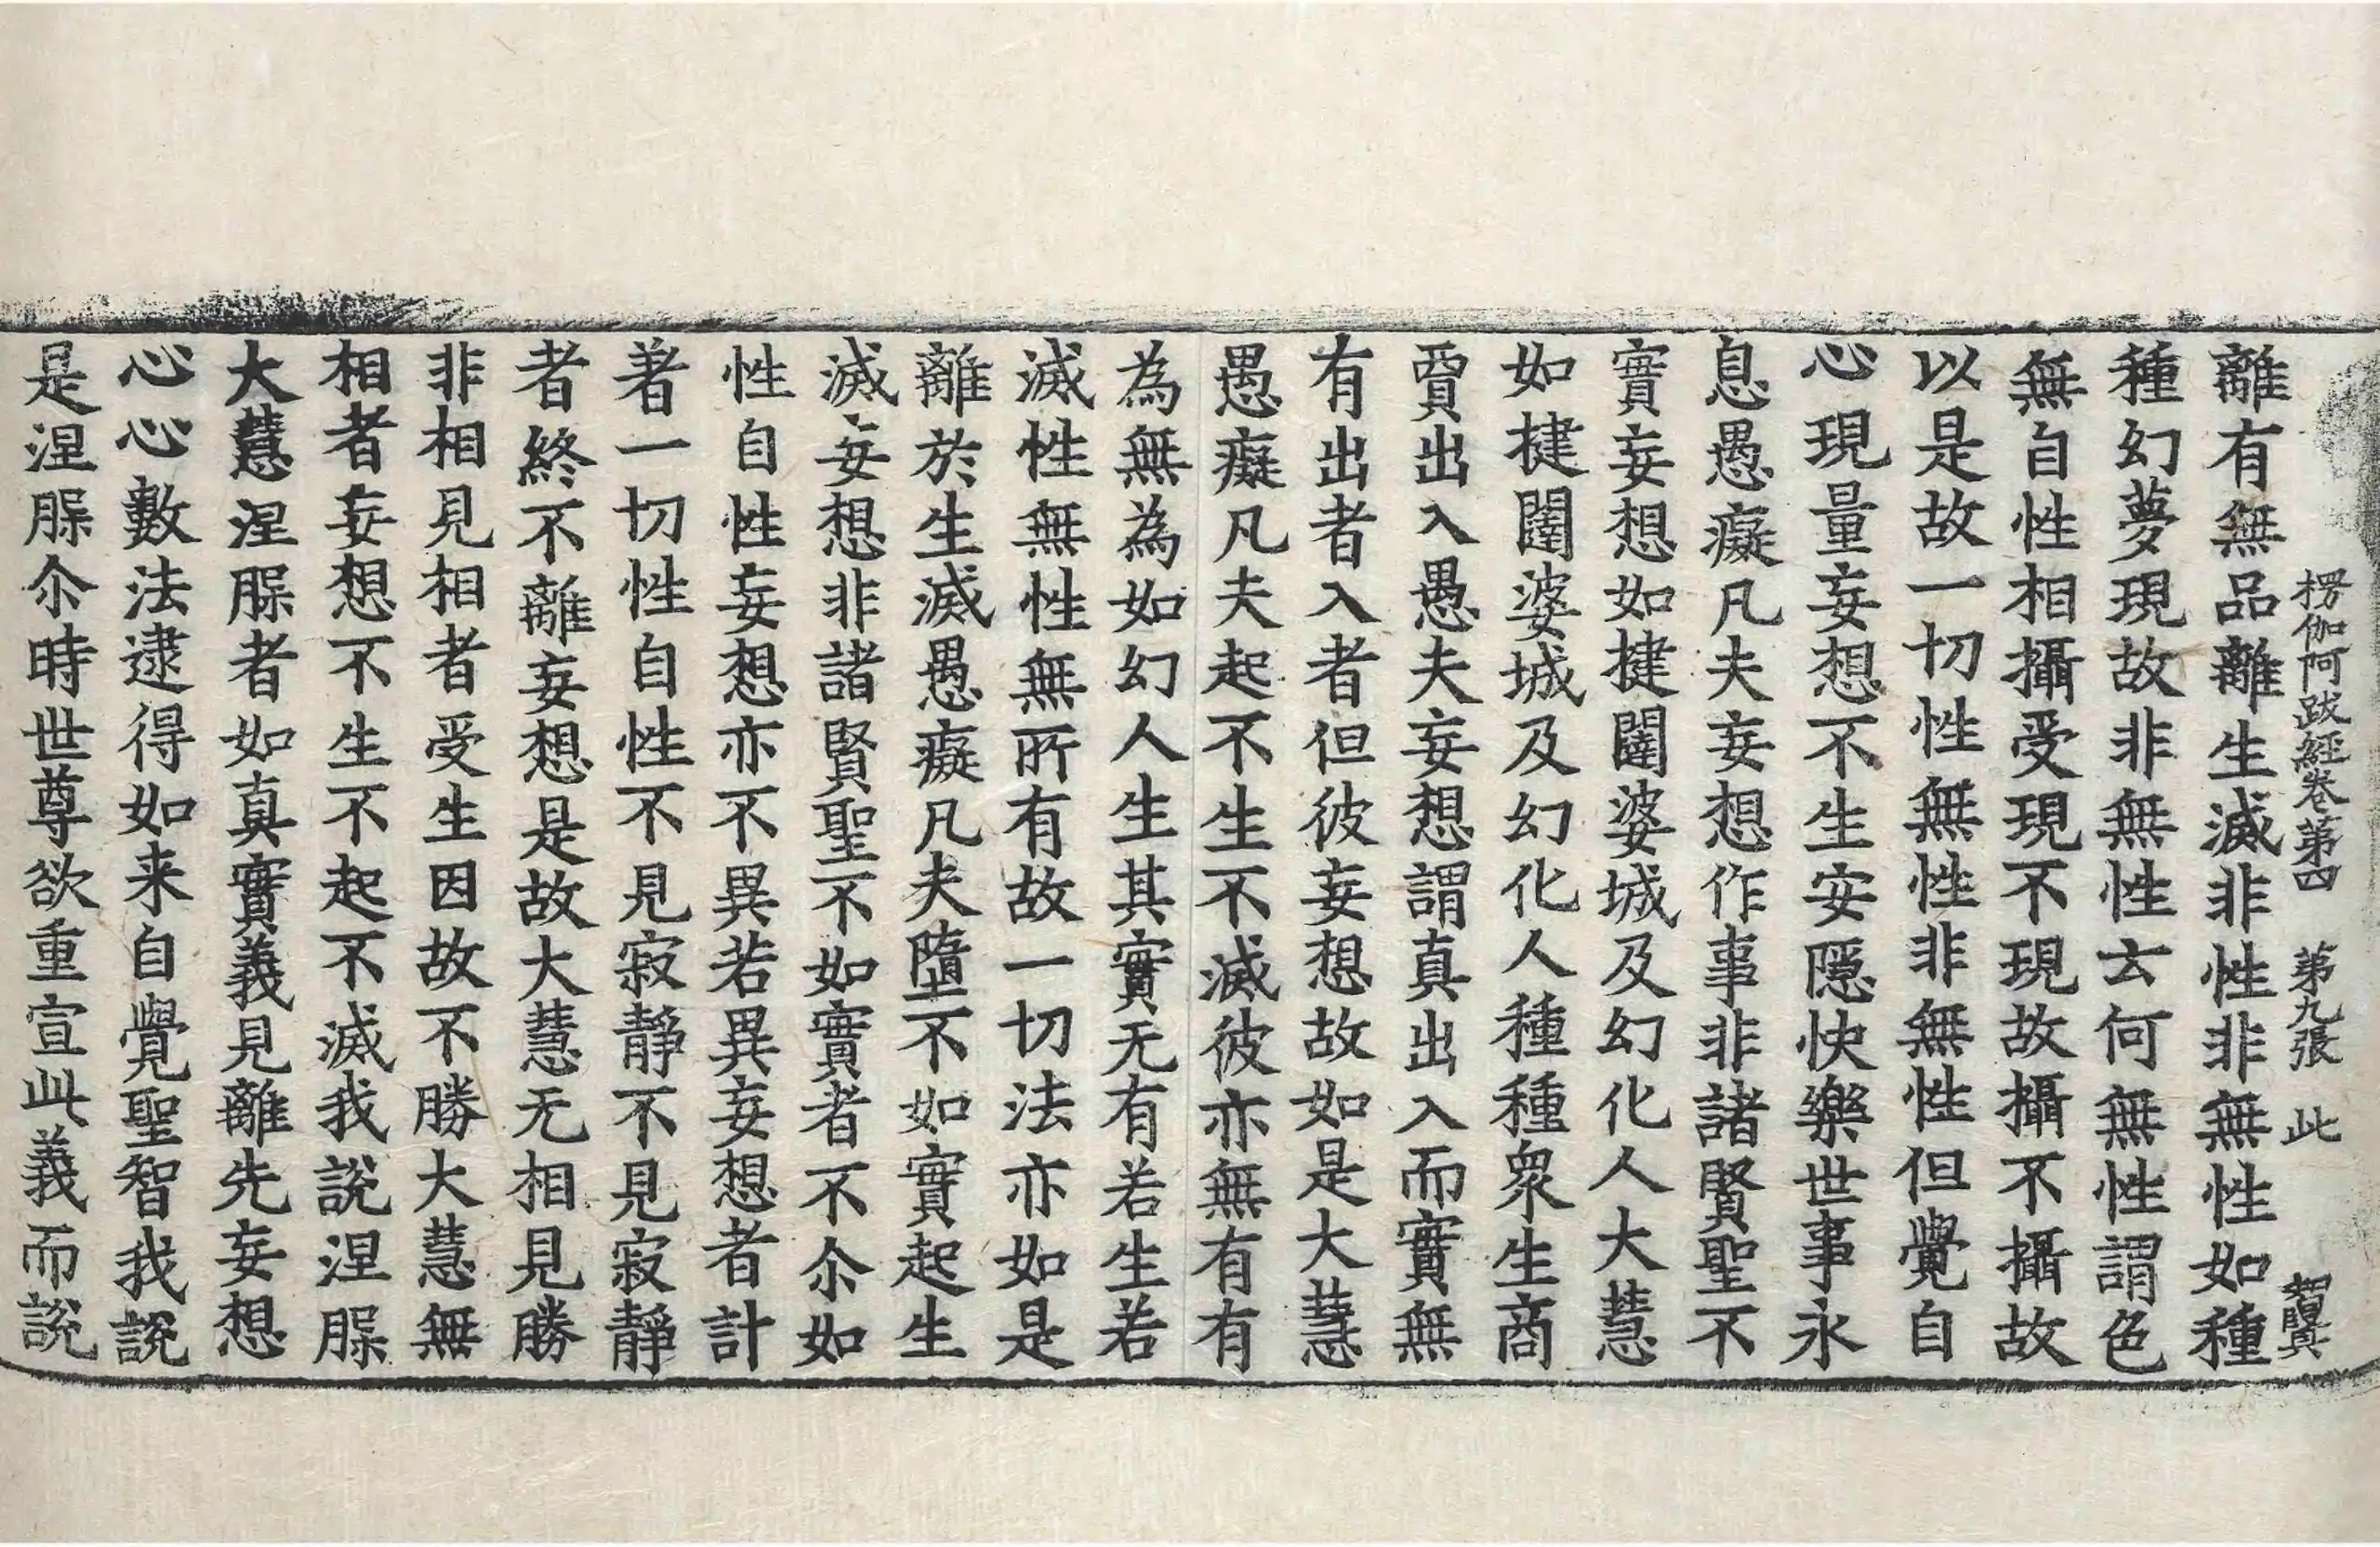 楞伽阿跋經卷第四　第九張　此
離有無品離生滅非性非無性如種
種幻夢現故非無性云何無性謂色
無自性相攝受現不現故攝不攝故
以是故一切性無性非無性但覺自
心現量妄想不生安隱快樂世事永
息愚癡凡夫妄想作事非諸賢聖不
實妄想如揵闥婆城及幻化人大慧
如揵闥婆城及幻化人種種衆生商
賈出入愚夫妄想謂真出入而實無
有出者入者但彼妄想故如是大慧
愚癡凡夫起不生不滅彼亦無有有
為無為如幻人生其實无有若生若
滅性無性無所有故一切法亦如是
離於生滅愚癡凡夫墮不如實起生
滅妄想非諸賢聖不如實者不尒如
性自性妄想亦不異若異妄想者計
著一切性自性不見寂靜不見寂靜
者終不離妄想是故大慧无相見勝
非相見相者受生因故不勝大慧無
相者妄想不生不起不滅我說涅槃
大慧涅槃者如真實義見離先妄想
心心數法逮得如来自覺聖智我說
是涅槃尒時世尊欲重宣此義而說